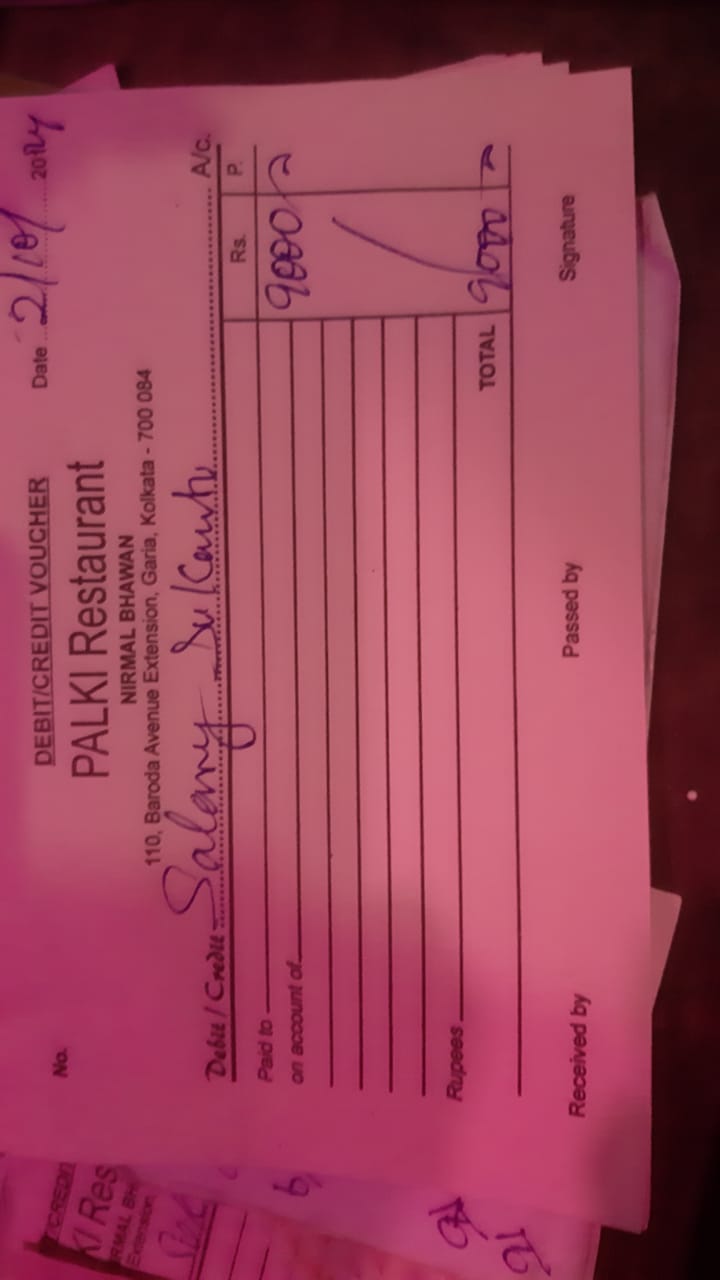 DEBIT/CREDIT VOUCHER
No.
Date 2/01/2024
PALKI Restaurant
NIRMAL BHAWAN
110, Baroda Avenue Extension, Garia, Kolkata - 700 084
Debit / Credit Salary A/c.
Rs. P.
Paid to 9000
on account of
Rupees TOTAL 9000
Received by Passed by Signature
/CREDIT
KI Res
RMAL BH
Extension,